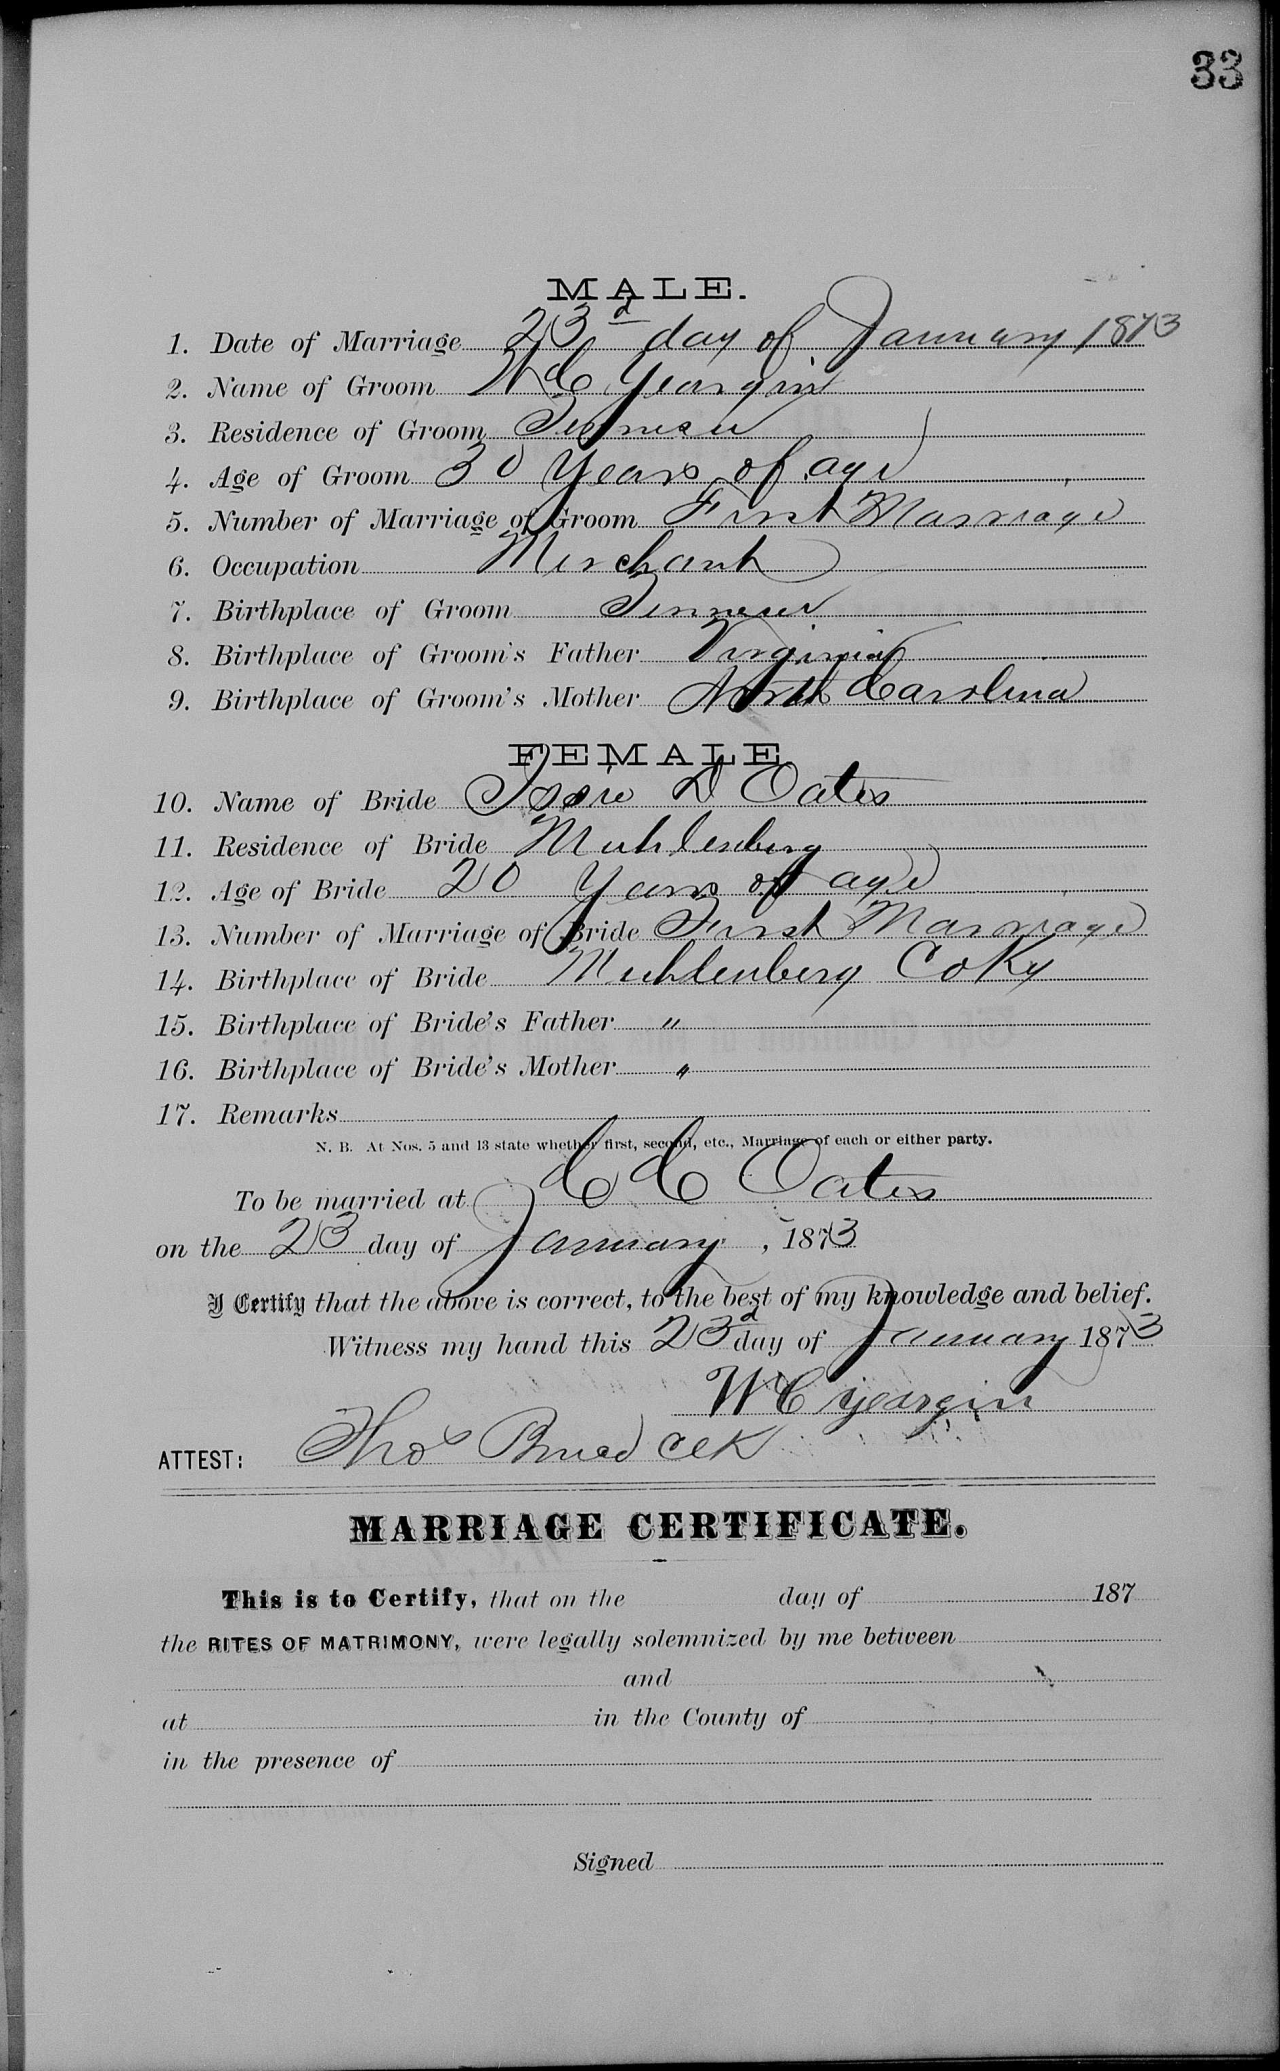 33
MALE.
1. Date of Marriage 23d day of January 1873
2. Name of Groom W C Yeargin
3. Residence of Groom Tennessee
4. Age of Groom 30 Years of age
5. Number of Marriage of Groom First Marriage
6. Occupation Merchant
7. Birthplace of Groom Tennessee
8. Birthplace of Groom's Father Virginia
9. Birthplace of Groom's Mother North Carolina
FEMALE
10. Name of Bride D Oates
11. Residence of Bride Muhlenberg
12. Age of Bride 20 Years of age
13. Number of Marriage of Bride First Marriage
14. Birthplace of Bride Muhlenberg Co Ky
15. Birthplace of Bride's Father "
16. Birthplace of Bride's Mother "
17. Remarks
N. B. At Nos. 5 and 13 state whether first, second, etc., Marriage of each or either party.
To be married at C C Oates
on the 23 day of January, 1873
I Certify that the above is correct, to the best of my knowledge and belief.
Witness my hand this 23d day of January 1873
W C Yeargin
ATTEST: Thos Clk
MARRIAGE CERTIFICATE.
This is to Certify, that on the day of 187
the RITES OF MATRIMONY, were legally solemnized by me between
and
at in the County of
in the presence of
Signed